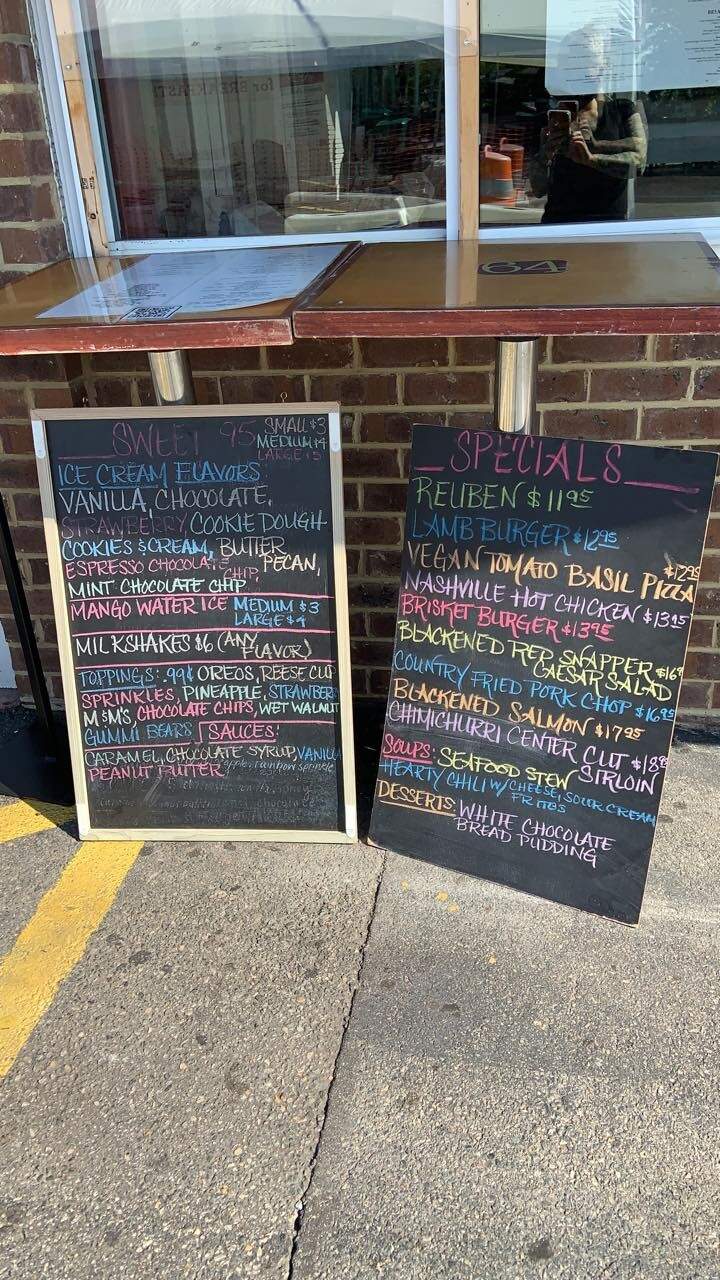 for BREAKFAST!
64
SWEET 95
SMALL $3
MEDIUM $4
LARGE $5
ICE CREAM FLAVORS:
VANILLA, CHOCOLATE,
STRAWBERRY COOKIE DOUGH
COOKIES & CREAM, BUTTER
PECAN,
ESPRESSO CHOCOLATE
CHIP,
MINT CHOCOLATE CHIP
MANGO WATER ICE MEDIUM $3
LARGE $4
MILKSHAKES $6 (ANY
FLAVOR)
TOPPINGS: .99¢ OREOS, REESE CUP
SPRINKLES, PINEAPPLE, STRAWBER
M&M'S, CHOCOLATE CHIPS, WET WALNUT
GUMMI BEARS SAUCES:
CARAMEL, CHOCOLATE SYRUP, VANILL
PEANUT BUTTER
SPECIALS
REUBEN $11.95
LAMB BURGER $12.95
VEGAN TOMATO BASIL PIZZA $12.95
NASHVILLE HOT CHICKEN $13.95
BRISKET BURGER $13.95
BLACKENED RED SNAPPER $16.9
CAESAR SALAD
COUNTRY FRIED PORK CHOP $16.95
BLACKENED SALMON $17.95
CHIMICHURRI CENTER CUT $18.95
SIRLOIN
SOUPS: SEAFOOD STEW
HEARTY CHILI W/CHEESE, SOUR CREAM
FRITOS
DESSERTS: WHITE CHOCOLATE
BREAD PUDDING